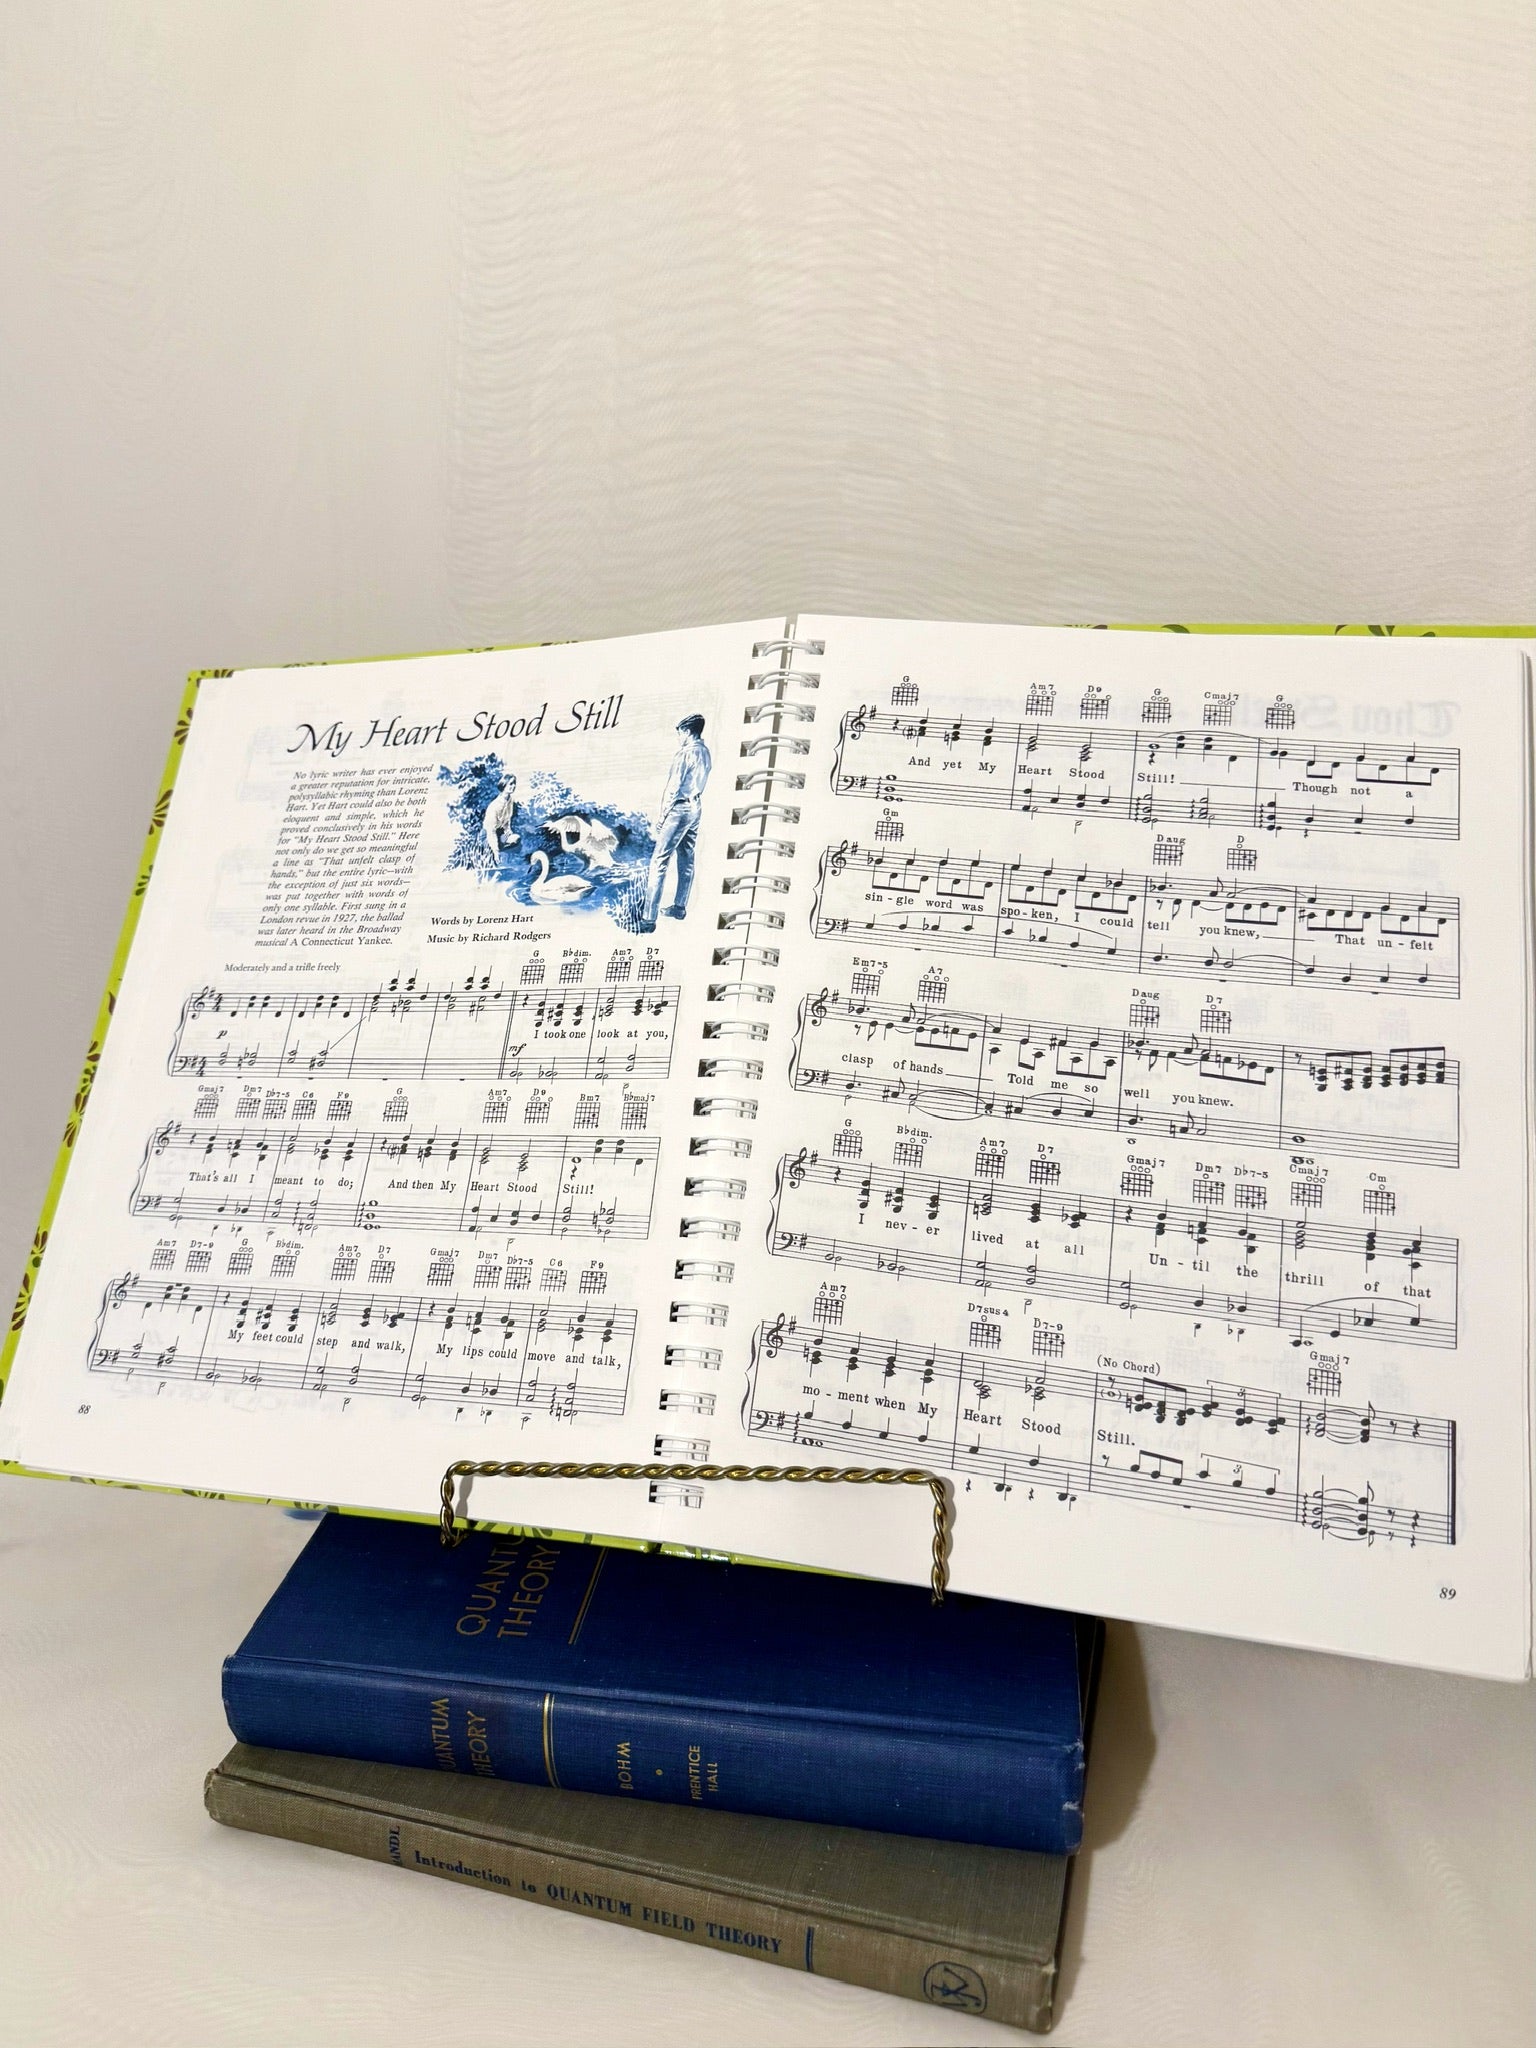 My Heart Stood Still
No lyric writer has ever enjoyed
a greater reputation for intricate,
polysyllabic rhyming than Lorenz
Hart. Yet Hart could also be both
eloquent and simple, which he
proved conclusively in his words
for "My Heart Stood Still." Here
not only do we get so meaningful
a line as "That unfelt clasp of
hands," but the entire lyric—with
the exception of just six words—
was put together with words of
only one syllable. First sung in a
London revue in 1927, the ballad
was later heard in the Broadway
musical A Connecticut Yankee.
Words by Lorenz Hart
Music by Richard Rodgers
Moderately and a trifle freely
G B♭dim. Am7 D7
p
mf
I took one look at you,
Gmaj7 Dm7 D♭7-5 C6 F9 G Am7 D9 Bm7 B♭maj7
That's all I meant to do; And then My Heart Stood Still!
Am7 D7-9 G B♭dim. Am7 D7 Gmaj7 Dm7 D♭7-5 C6 F9
My feet could step and walk, My lips could move and talk,
88
G Am7 D9 G Cmaj7 G
And yet My Heart Stood Still! Though not a
Gm Daug D
sin - gle word was spo - ken, I could tell you knew, That un - felt
Em7-5 A7 Daug D7
clasp of hands Told me so well you knew.
G B♭dim. Am7 D7 Gmaj7 Dm7 D♭7-5 Cmaj7 Cm
I nev - er lived at all Un - til the thrill of that
Am7 D7sus4 D7-9 (No Chord) Gmaj7
mo - ment when My Heart Stood Still.
3
3
89
QUANTUM
THEORY
QUANTUM
THEORY
BOHM
•
PRENTICE
HALL
Introduction to QUANTUM FIELD THEORY